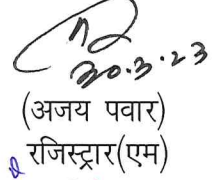 30.3.23
(अजय पवार)
रजिस्ट्रार(एम)